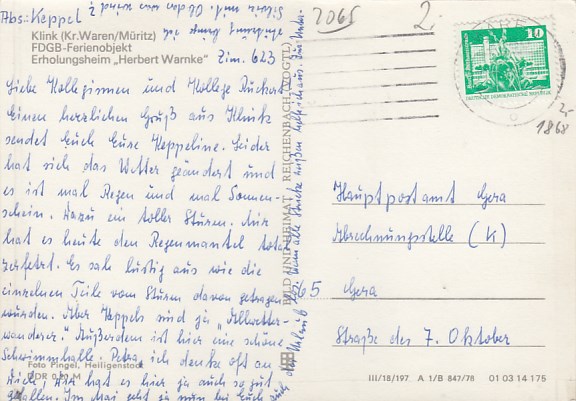 Abs: Keppel
Klink (Kr. Waren/Müritz)
FDGB-Ferienobjekt
Erholungsheim „Herbert Warnke“ Zim. 623
Liebe Kolleginnen und Kollege Rückert
Einen herzlichen Gruß aus Klink
sendet Euch Eure Keppeline. Leider
hat sich das Wetter geändert und
es ist mal Regen und mal Sonnen-
schein. Dazu ein toller Sturm. Mir
hat es heute den Regenmantel total
zerfetzt. Es sah lustig aus wie die
einzelnen Teile vom Sturm davon getragen
wurden. Aber Keppels sind ja „Allwetter-
wanderer.“ Außerdem ist hier eine schöne
Schwimmhalle. Petra, ich denke oft an
Dich, Dir hat es hier ja auch so gut
gefallen. Im Mai
Foto Pingel, Heiligenstadt
DDR 0,20 M
BILD UND HEIMAT REICHENBACH (VOGTL)
2065
2.
10
DEUTSCHE DEMOKRATISCHE REPUBLIK
1868
Hauptpostamt Gera
Abrechnungsstelle (K)
65 Gera
Straße des 7. Oktober
III/18/197 A 1/B 847/78 01 03 14 175